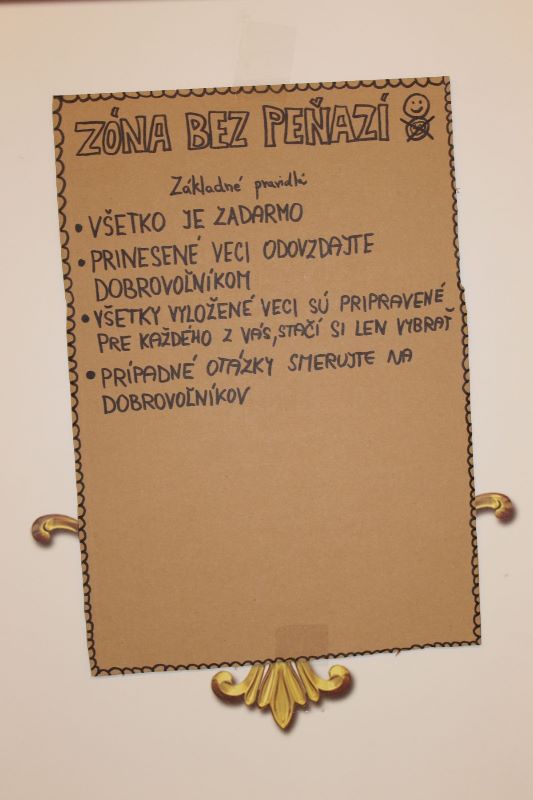 ZÓNA BEZ PEŇAZÍ
Základné pravidlá
• VŠETKO JE ZADARMO
• PRINESENÉ VECI ODOVZDAJTE
DOBROVOĽNÍKOM
• VŠETKY VYLOŽENÉ VECI SÚ PRIPRAVENÉ
PRE KAŽDÉHO Z VÁS, STAČÍ SI LEN VYBRAŤ
• PRÍPADNÉ OTÁZKY SMERUJTE NA
DOBROVOĽNÍKOV